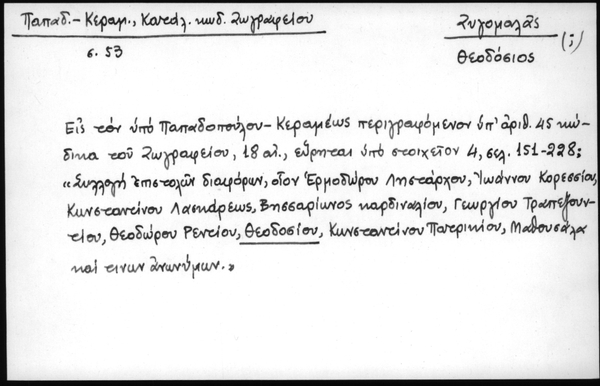 Παπαδ.-Κεραμ., Κατάλ. κωδ. Ζωγραφείου
σ. 53
Ζυγομαλᾶς
(;)
Θεοδόσιος
Εἰς τόν ὑπό Παπαδοπούλου-Κεραμέως περιγραφόμενον ὑπ' ἀριθ. 45 κώ-
δικα τοῦ Ζωγραφείου, 18 αἰ., εὕρηται ὑπό στοιχεῖον 4, σελ. 151-228;
«Συλλογή ἐπιστολῶν διαφόρων, οἷον Ἑρμοδώρου Ληστάρχου, Ἰωάννου Κορεσσίου,
Κωνσταντίνου Λασκάρεως, Βησσαρίωνος καρδιναλίου, Γεωργίου Τραπεζουν-
τίου, Θεοδώρου Ρεντίου, Θεοδοσίου, Κωνσταντίνου Πατρικίου, Μαθουσάλα
καί τινων ἀνωνύμων.»